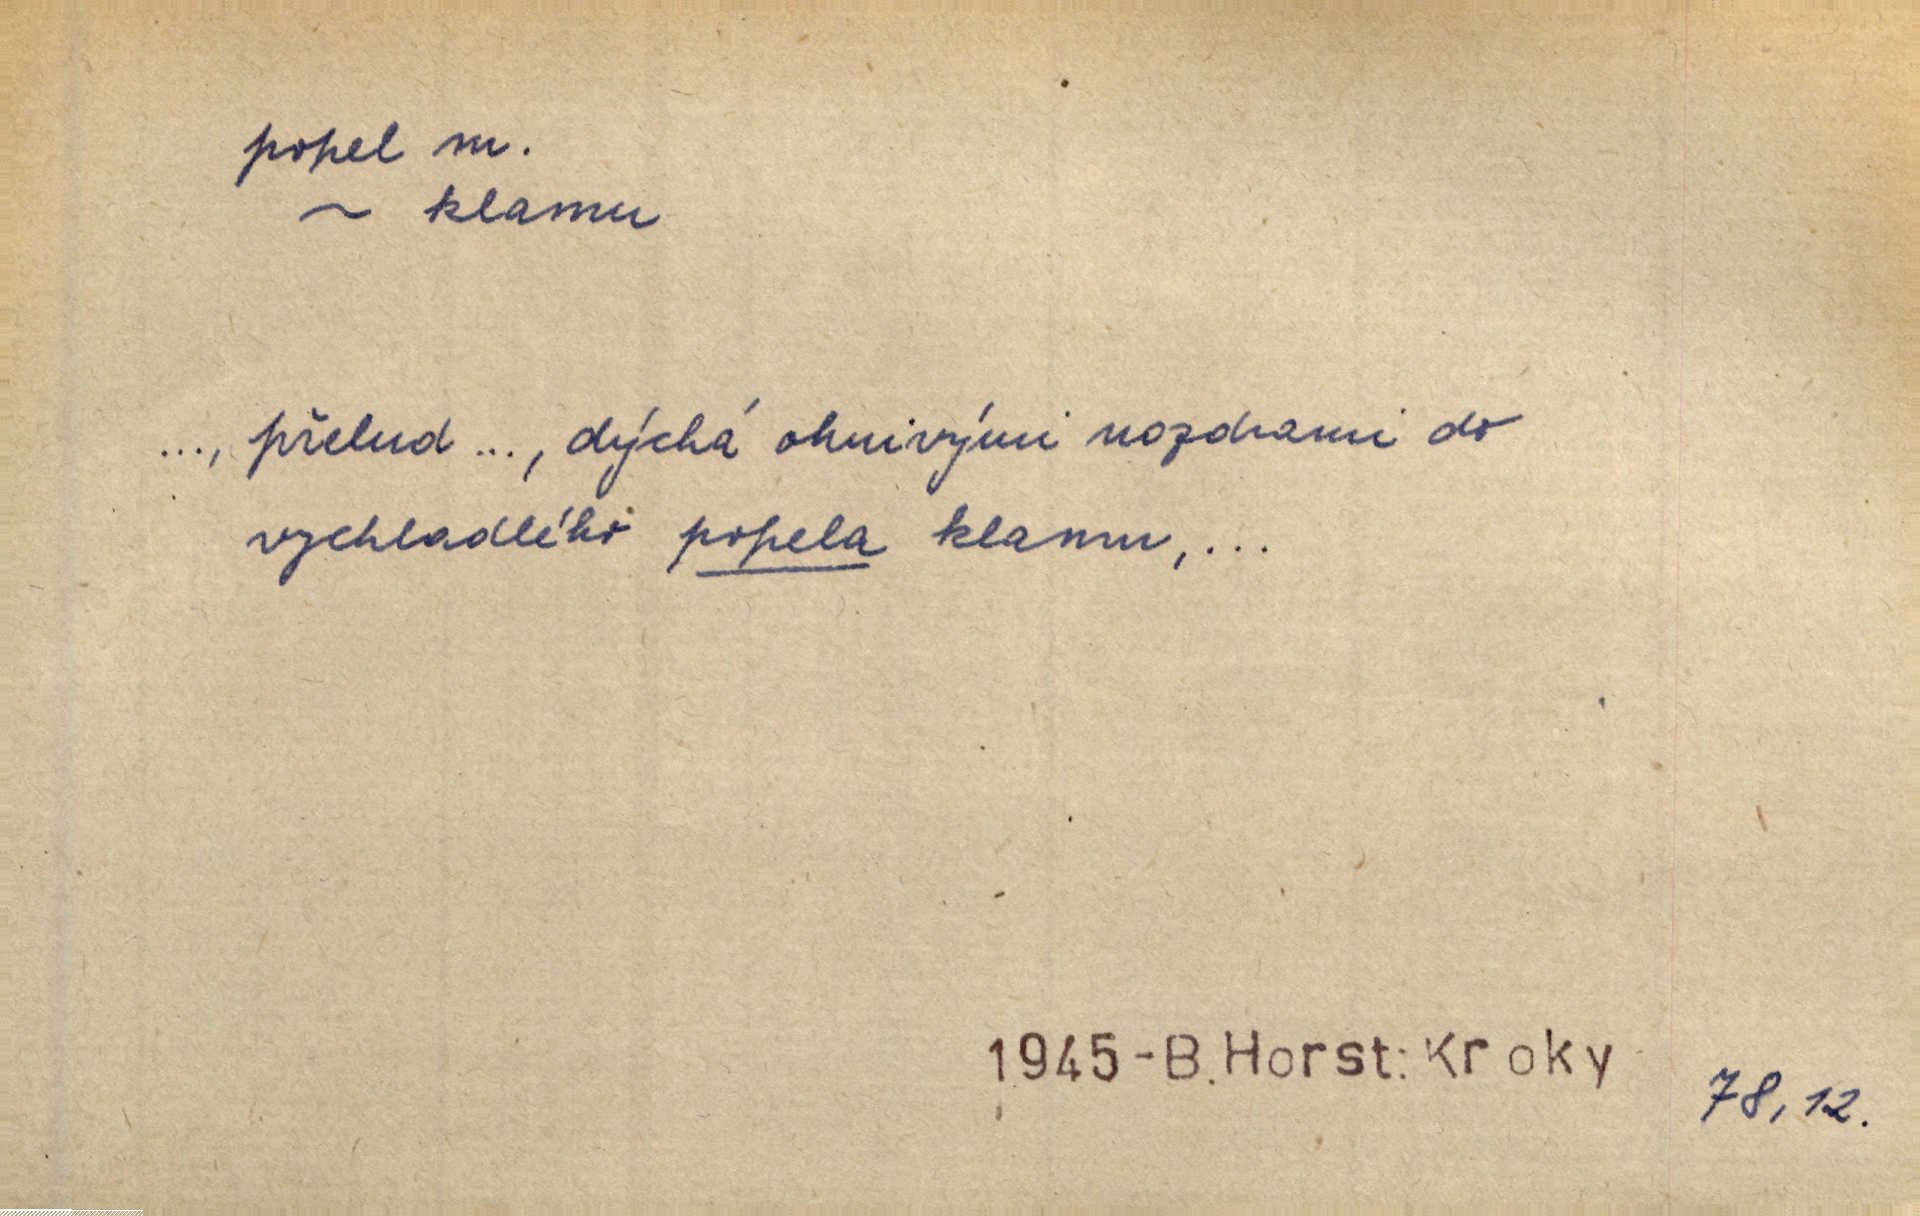 popel m.
~ klamu
..., přelud ..., dýchá ohnivými nozdrami do
vychladlého popela klamu, ...
1945 - B. Horst: Kroky
78, 12.